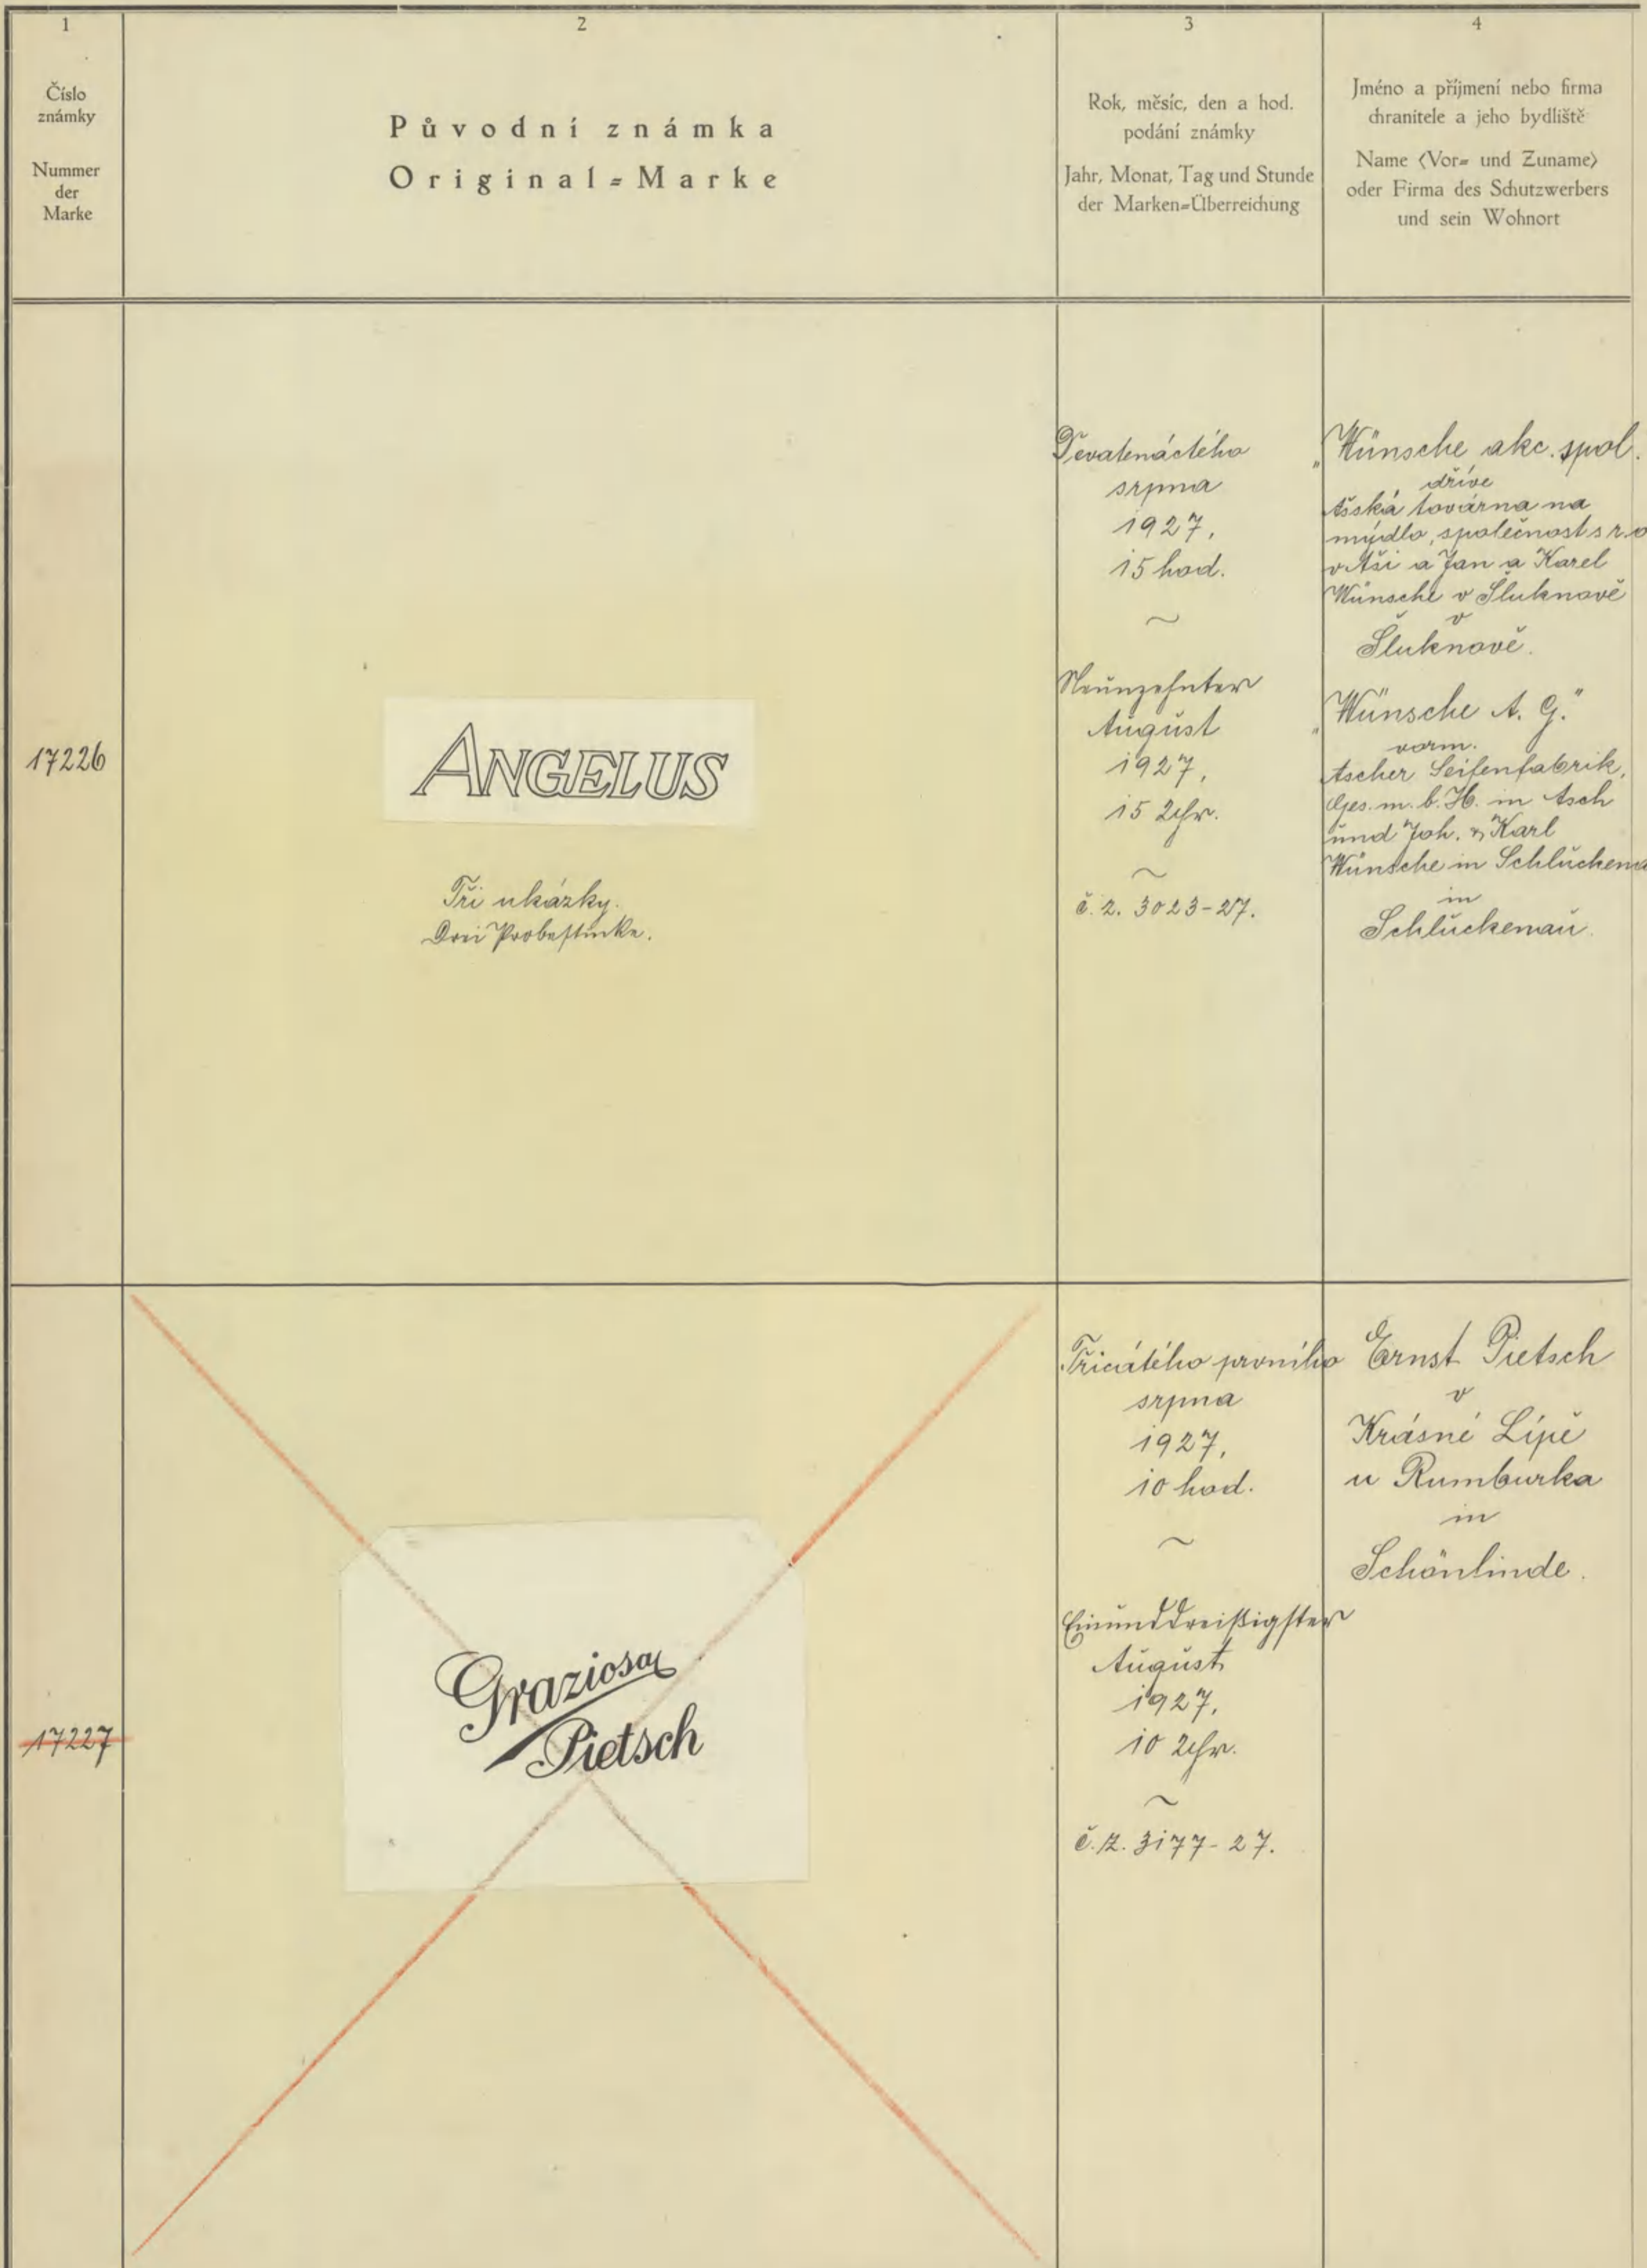 1
2
3
4
Číslo
známky
Nummer
der
Marke
Původní známka
Original=Marke
Rok, měsíc, den a hod.
podání známky
Jahr, Monat, Tag und Stunde
der Marken=Überreichung
Jméno a příjmení nebo firma
chranitele a jeho bydliště
Name (Vor= und Zuname)
oder Firma des Schutzwerbers
und sein Wohnort
17226
ANGELUS
Tři ukázky.
Drei Probestücke.
Devatenáctého
srpna
1927,
15 hod.
~
Neunzehnter
August
1927,
15 Uhr.
~
č. z. 3023-27.
„Wünsche akc. spol.
dříve
Ašská továrna na
mýdlo, společnost s r. o
v Aši a Jan a Karel
Wünsche v Šluknově
v
Šluknově.
„Wünsche A. G."
vorm.
Ascher Seifenfabrik,
Ges. m. b. H. in Asch
und Joh. & Karl
Wünsche in Schluckena
in
Schluckenau.
17227
Graziosa
Pietsch
Třicátého prvního
srpna
1927,
10 hod.
~
Einunddreißigster
August
1927,
10 Uhr.
~
č. z. 3177-27.
Ernst Pietsch
v
Krásné Lípě
u Rumburka
in
Schönlinde.